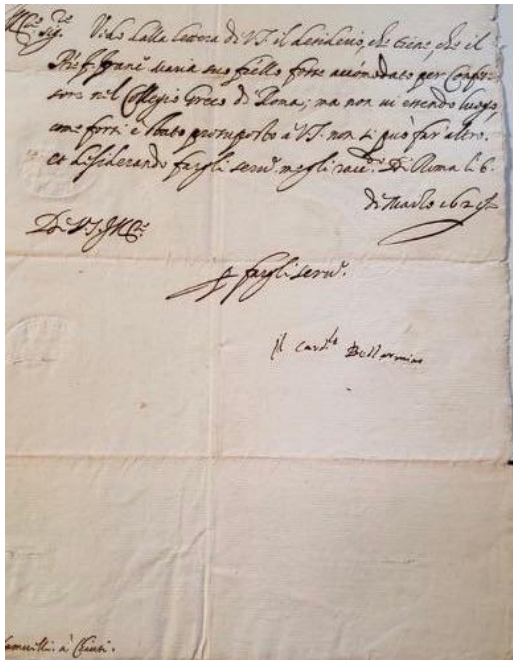 Sig.re Vido dalla lettera di V.S. il desiderio, che tiene, che il
Maria suo fr̃ello fosse accomodato per Confes-
sore nel Collegio Greco di Roma; ma non vi essendo luogo,
come forsi è stato presupposto à V.S. non si può far altro.
et desiderando fargli serv.o megli racc.do Di Roma li 6.
di Marzo
Di V.S.
fargli serv.o
Il Card.le Bellarmino
à Chiusi.